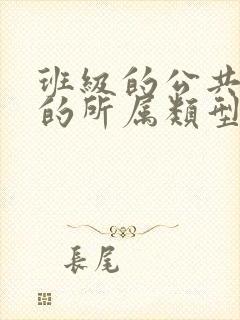 班級的公共
的所属類型
長尾